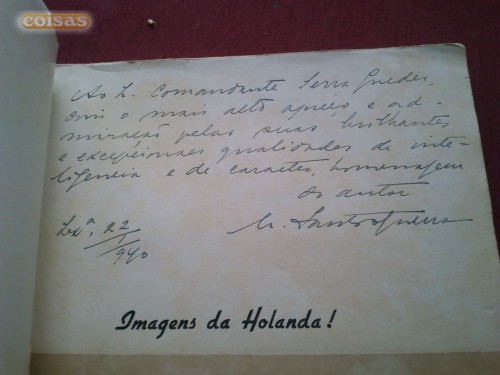 coisas
Ao L. Comandante Serra Guedes,
com o mais alto apreço e ad-
miração pelas suas brilhantes
e excepcionaes qualidades de inte-
ligencia e de caracter, homenagem
do autor
Lxª, 22/1/940
Santos Guerra
Imagens da Holanda!